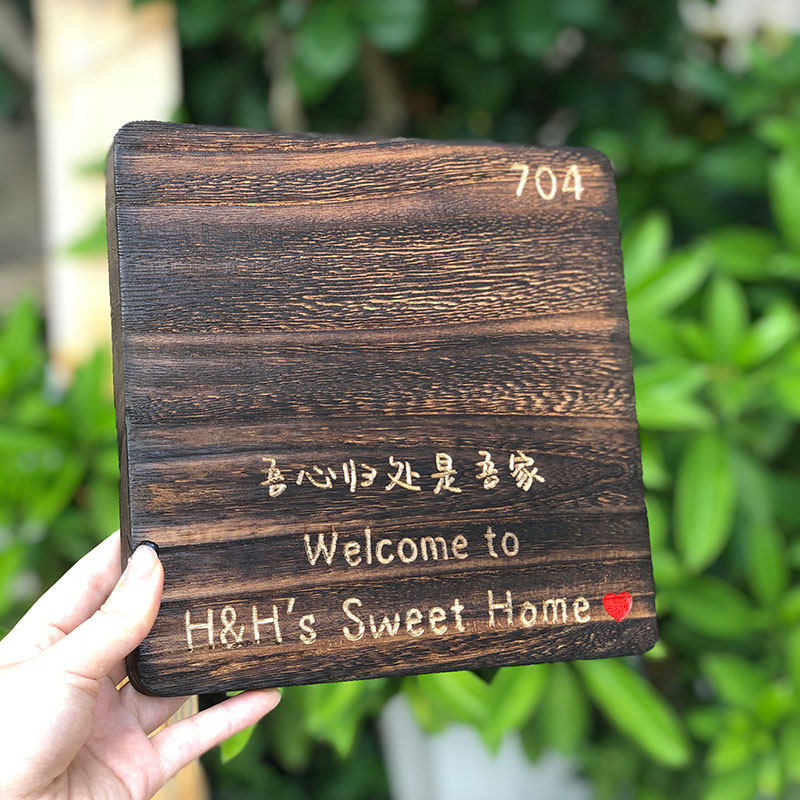 704
吾心归处是吾家
Welcome to
H&H's Sweet Home